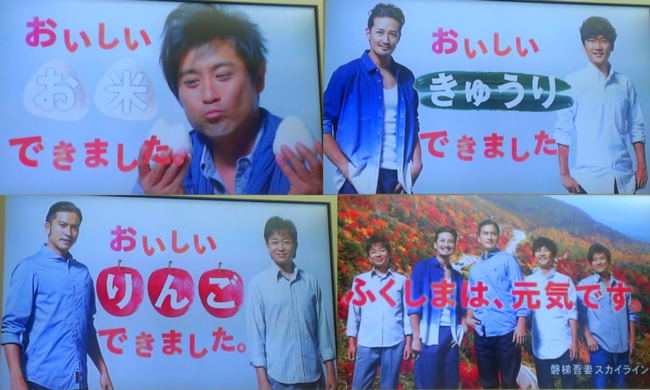 おいしい
お米
できました。
おいしい
きゅうり
できました
おいしい
りんご
できました。
ふくしまは、元気です。
磐梯吾妻スカイライン